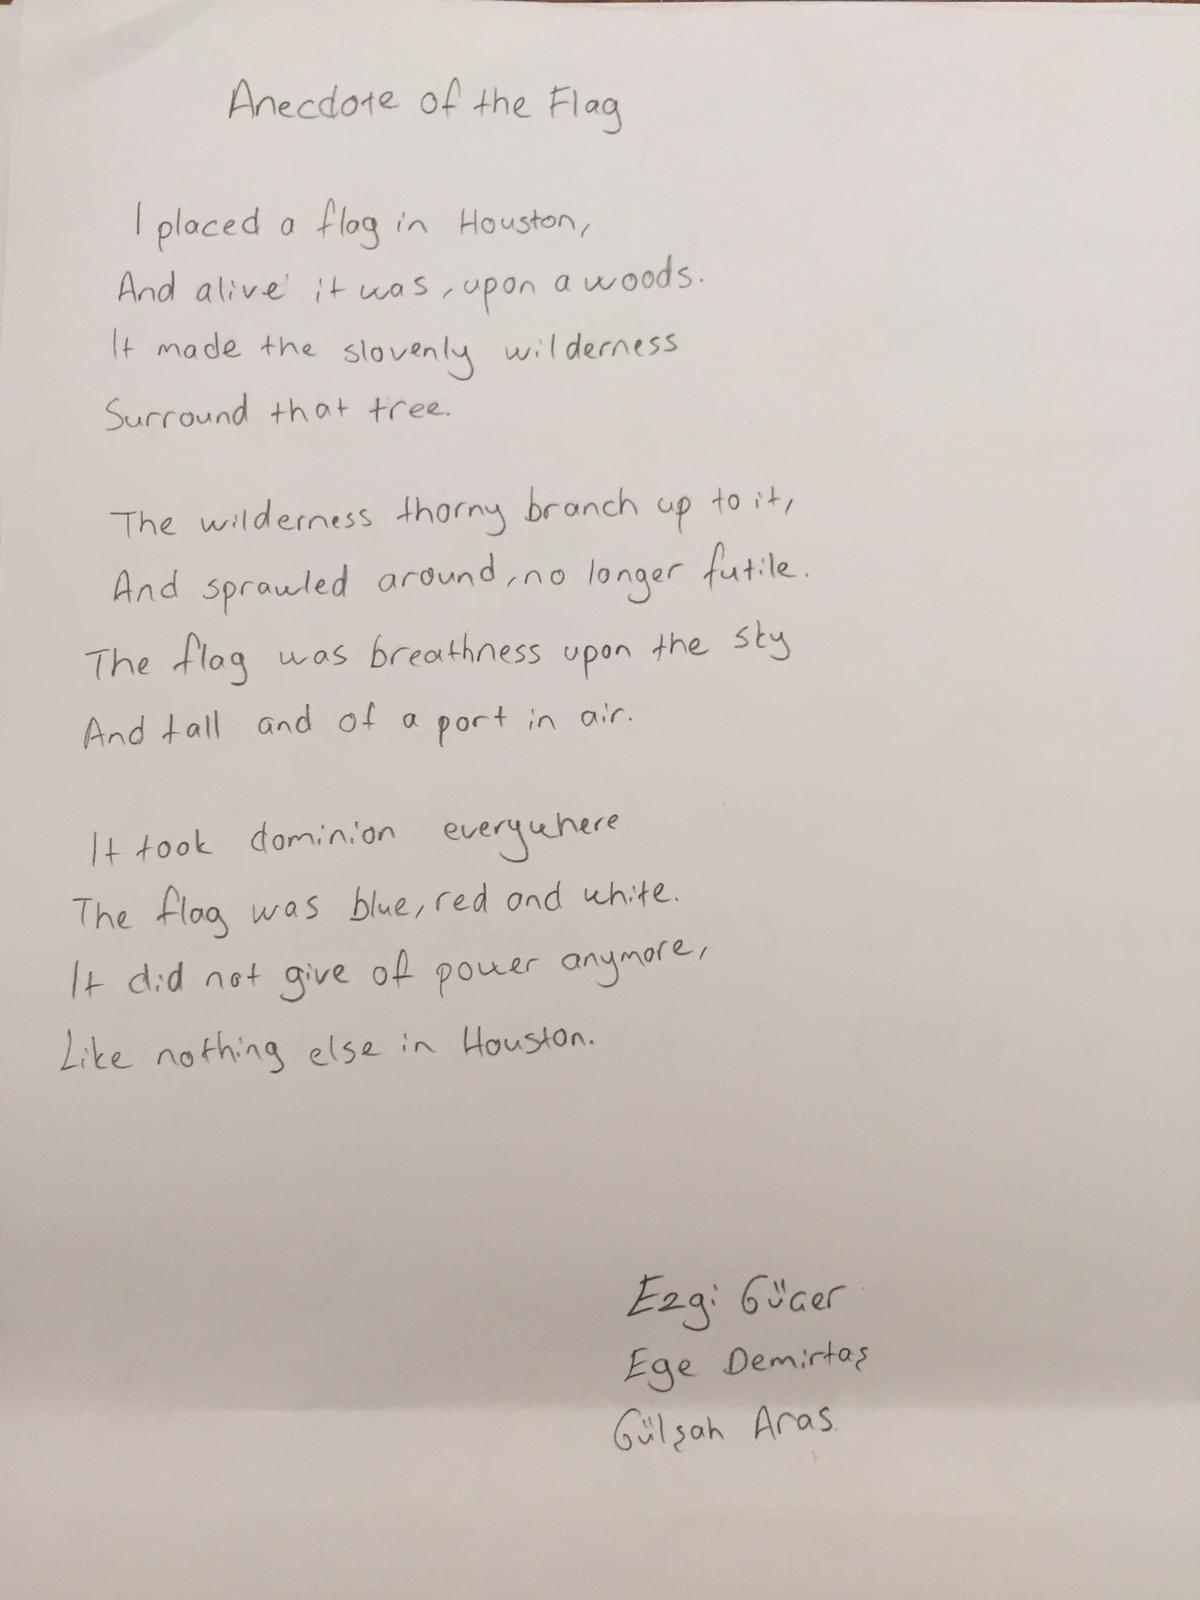 Anecdote of the Flag
I placed a flag in Houston,
And alive it was, upon a woods.
It made the slovenly wilderness
Surround that tree.
The wilderness thorny branch up to it,
And sprawled around, no longer futile.
The flag was breathness upon the sky
And tall and of a port in air.
It took dominion everywhere
The flag was blue, red and white.
It did not give of power anymore,
Like nothing else in Houston.
Ezgi Gücer
Ege Demirtaş
Gülşah Aras